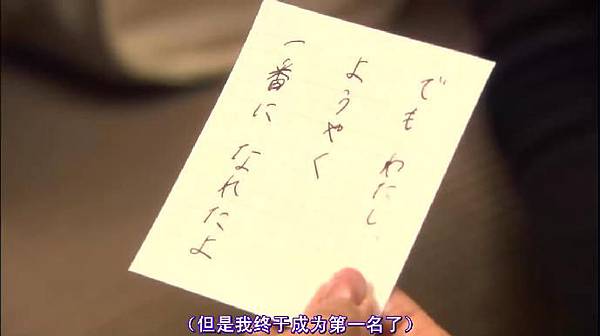 でも わたし、
ようやく
一番に なれたよ
（但是我终于成为第一名了）